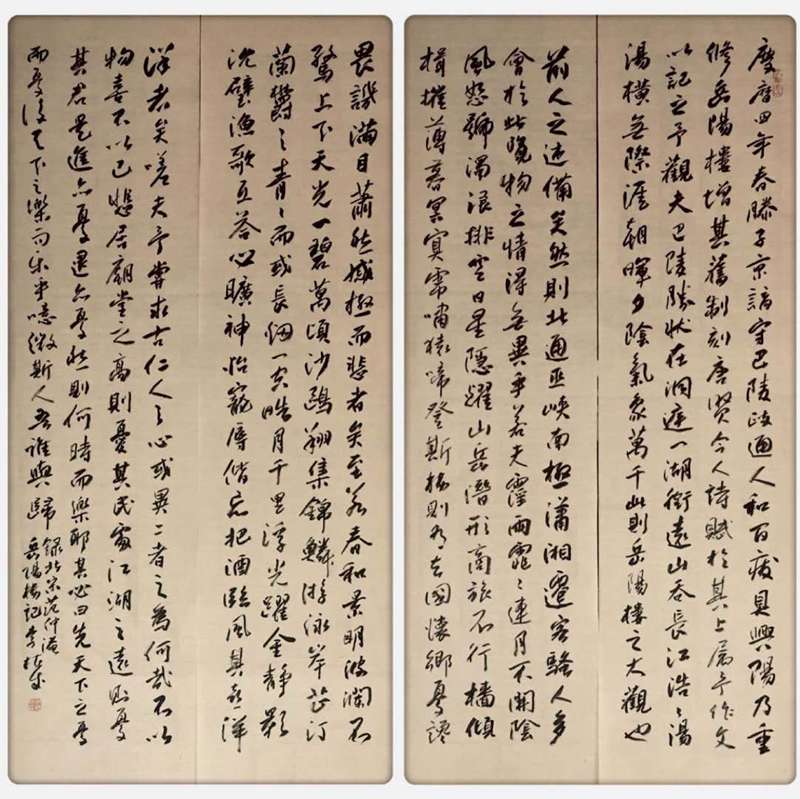 慶曆四年春滕子京謫守巴陵政通人和百廢具興陽乃重
修岳陽樓增其舊制刻唐賢今人詩賦於其上屬予作文
以記之予觀夫巴陵勝狀在洞庭一湖銜遠山吞長江浩〻湯
湯橫無際涯朝暉夕陰氣象萬千此則岳陽樓之大觀也
前人之述備矣然則北通巫峽南極瀟湘遷客騷人多
會於此覽物之情得無異乎若夫霪雨霏〻連月不開陰
風怒號濁浪排空日星隱耀山岳潛形商旅不行檣傾
楫摧薄暮冥冥虎嘯猿啼登斯樓則有去國懷鄉憂讒
畏譏滿目蕭然感極而悲者矣至若春和景明波瀾不
驚上下天光一碧萬頃沙鷗翔集錦鱗游泳岸芷汀
蘭鬱〻青〻而或長煙一空皓月千里浮光躍金靜影
沉璧漁歌互答心曠神怡寵辱偕忘把酒臨風其喜洋
洋者矣嗟夫予嘗求古仁人之心或異二者之為何哉不以
物喜不以己悲居廟堂之高則憂其民處江湖之遠則憂
其君是進亦憂退亦憂然則何時而樂耶其必曰先天下之憂
而憂後天下之樂而樂乎噫微斯人吾誰與歸
錄北宋范仲淹
岳陽樓記